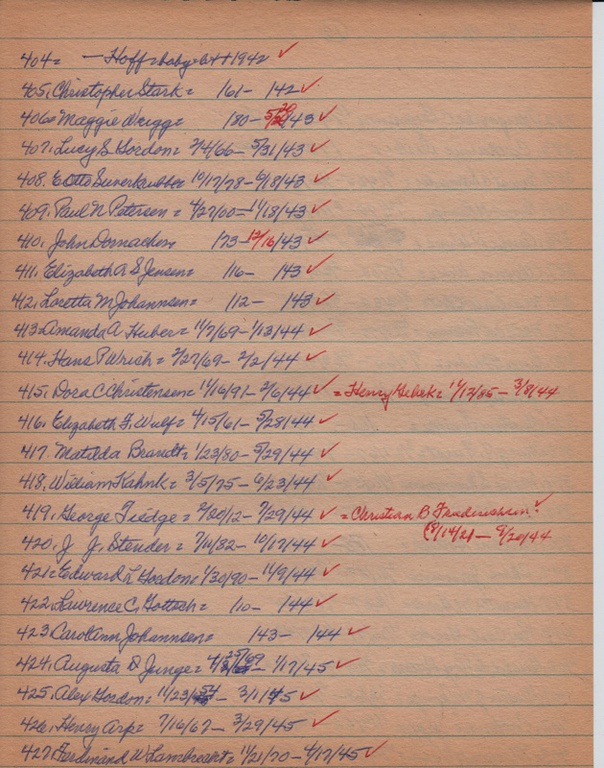 404= — Hoff=baby= b++1942 ✓
405, Christopher Stark= 161- 142 ✓
406= Maggie 180- 5/20/43 ✓
407, Lucy S Gordon= 2/4/66- 5/31/43 ✓
408, E Otto 10/17/78- 6/18/43 ✓
409, Paul N Petersen= 4/27/00= 11/18/43 ✓
410, John 173- 12/16/43 ✓
411, Elizabeth A S Jensen= 116- 143 ✓
412, Loretta M Johannsen= 112- 143 ✓
413= Amanda A Huber= 11/7/69- 1/13/44 ✓
414, Hans P Wrich= 2/27/69- 2/2/44 ✓
415, Dora C Christensen= 11/16/91- 2/6/44 ✓ = Henry 11/17/85- 3/8/44
416, Elizabeth F. Wulf= 4/15/61- 5/28/44 ✓
417, Matilda Brandt= 1/23/80- 5/29/44 ✓
418, William Kahnk= 3/5/75- 6/23/44 ✓
419, George Tiedge= 2/20/12- 7/29/44 ✓ = Christian B ✓
(8/14/21- 9/20/44
420, J J. Stender= 7/11/82- 10/17/44 ✓
421= Edward L Gordon= 1/30/90- 11/9/44 ✓
422, Lawrence C, Gottsch= 110- 144 ✓
423 Carol Ann Johannsen= 143- 144 ✓
424, Augusta D Junge= 4/25/69- 1/17/45 ✓
425, Alex Gordon= 11/23/54- 3/1/45 ✓
426, Henry Arp= 7/16/67- 3/29/45 ✓
427, Ferdinand W Lambrecht= 11/21/70- 4/17/45 ✓